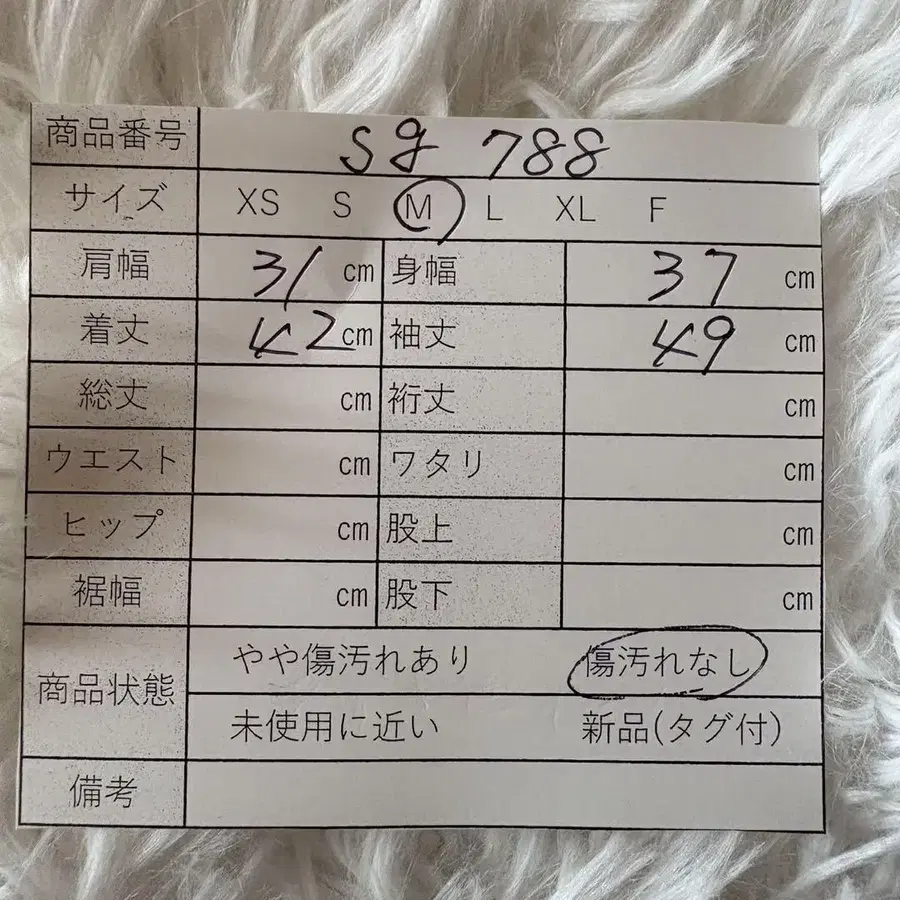 商品番号 sg 788
サイズ XS S M L XL F
肩幅 31 cm 身幅 37 cm
着丈 42 cm 袖丈 49 cm
総丈 cm 裄丈 cm
ウエスト cm ワタリ cm
ヒップ cm 股上 cm
裾幅 cm 股下 cm
商品状態 やや傷汚れあり 傷汚れなし
未使用に近い 新品(タグ付)
備考